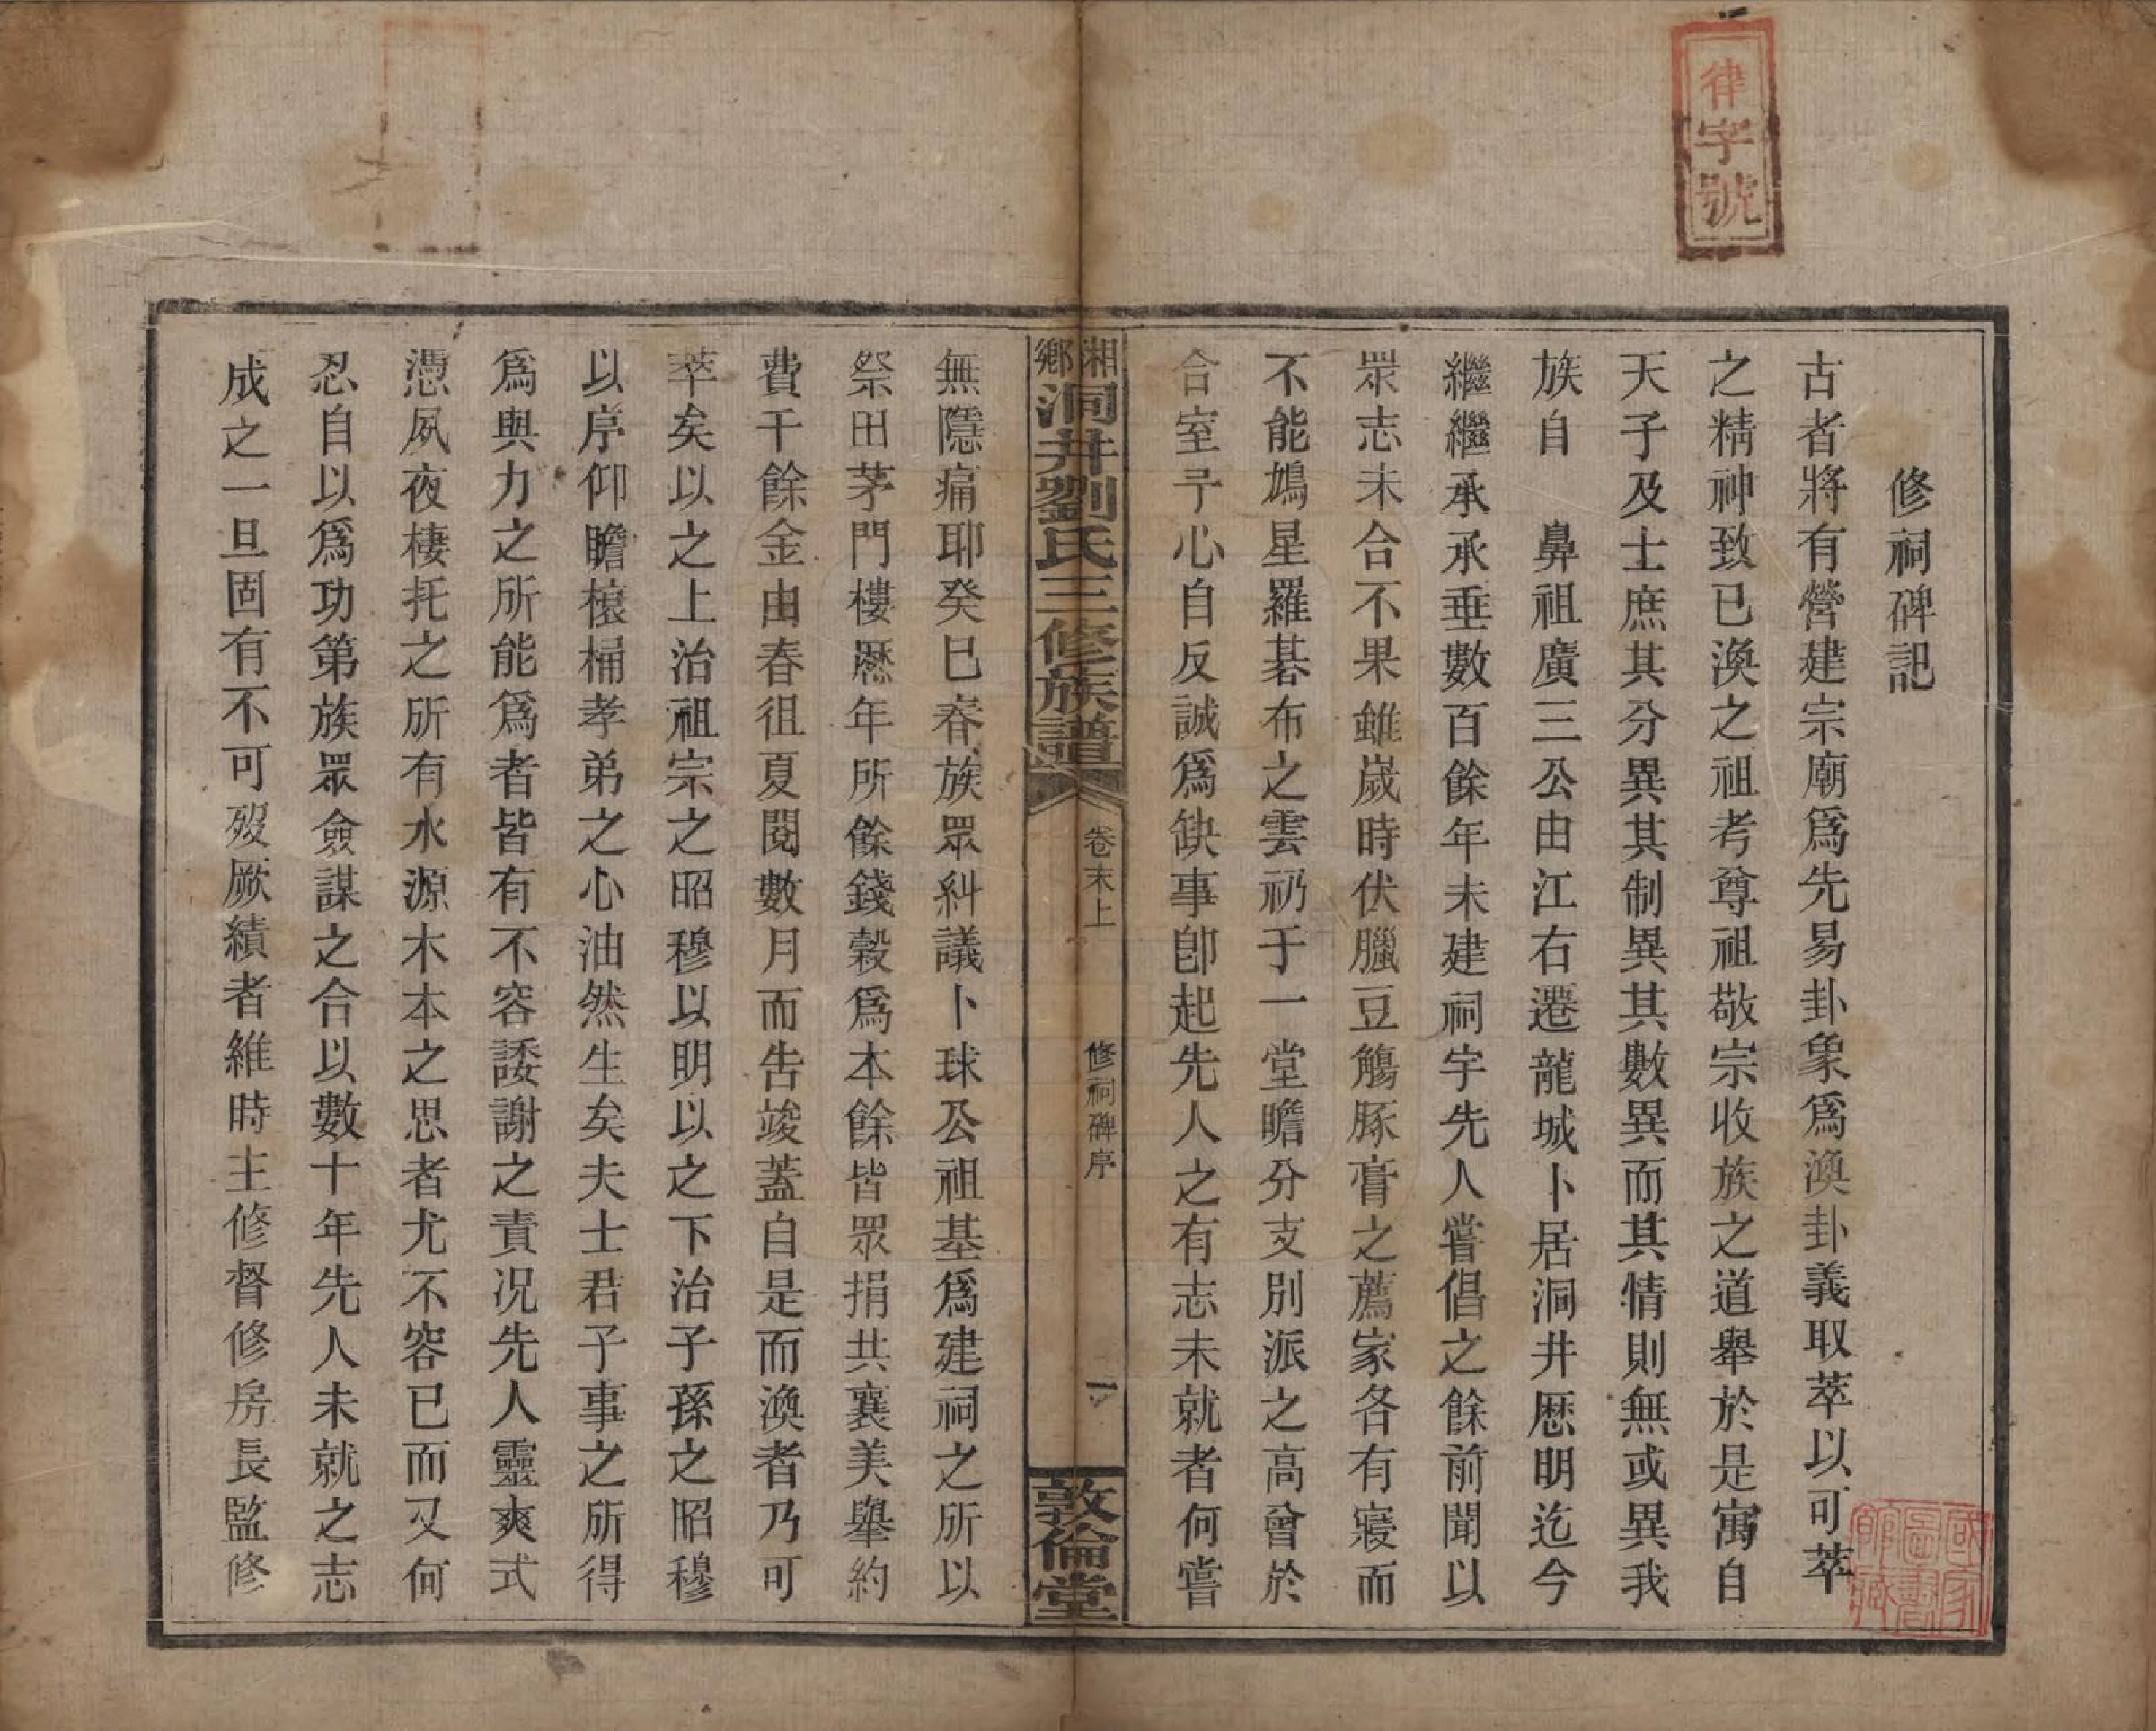 律字號
修祠碑記
古者將有營建宗廟爲先易卦象爲渙卦義取萃以可萃
之精神致已渙之祖考尊祖敬宗收族之道舉於是寓自
天子及士庶其分異其制異其數異而其情則無或異我
族自　鼻祖廣三公由江右遷龍城卜居洞井歷明迄今
繼繼承承垂數百餘年未建祠宇先人嘗倡之餘前聞以
眾志未合不果雖歲時伏臘豆觴豚膏之薦家各有寢而
不能鳩星羅碁布之雲礽于一堂瞻分支別派之高曾於
合室予心自反誠爲缺事卽起先人之有志未就者何嘗
湘鄉洞井劉氏三修族譜
卷末上
修祠碑序
一
敦倫堂
無隱痛耶癸巳春族眾糾議卜球公祖基爲建祠之所以
祭田茅門樓歷年所餘錢穀爲本餘皆眾捐共襄美舉約
費千餘金由春徂夏閱數月而告竣蓋自是而渙者乃可
萃矣以之上治祖宗之昭穆以明以之下治子孫之昭穆
以序仰瞻榱桷孝弟之心油然生矣夫士君子事之所得
爲與力之所能爲者皆有不容諉謝之責況先人靈爽式
憑夙夜棲托之所有水源木本之思者尤不容已而又何
忍自以爲功第族眾僉謀之合以數十年先人未就之志
成之一旦固有不可歿厥績者維時主修督修房長監修
國家圖書館藏